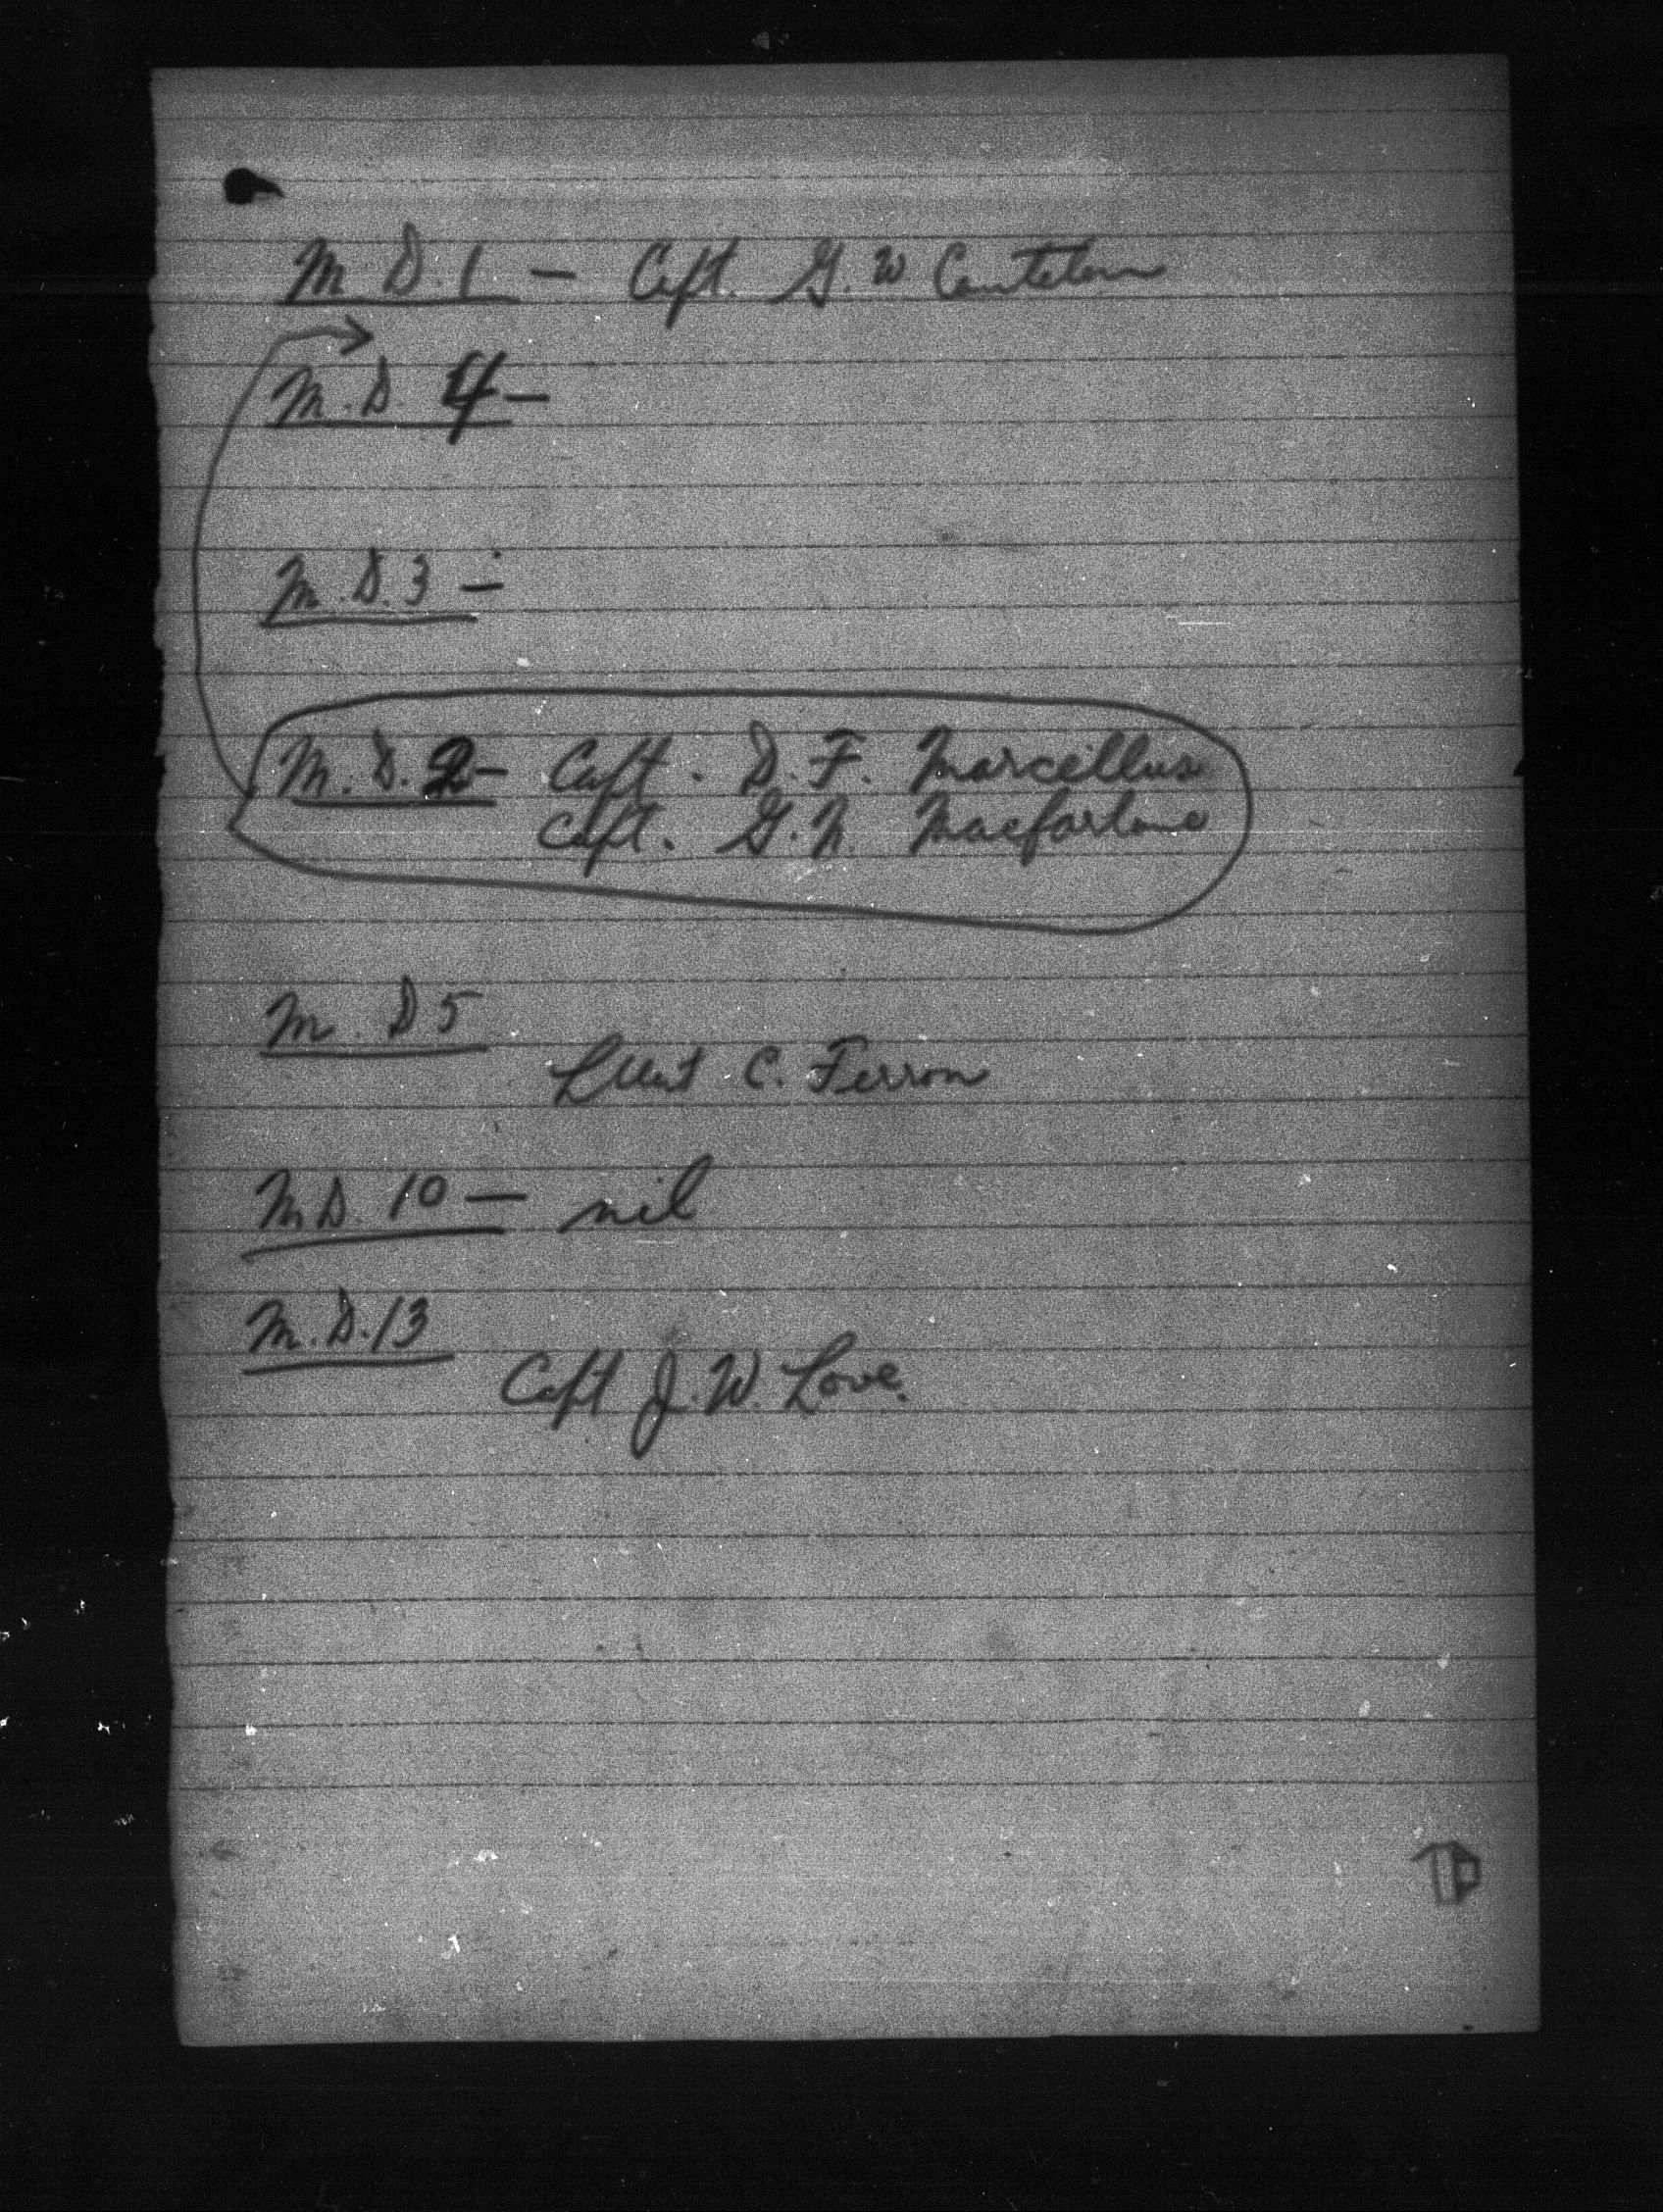 M.D.1 — Capt. G. W
M.D. 4 —
M.D.3 —
M.D.2 — Capt. D. F. Marcellus
Capt. G. N. Macfarlane
M.D 5
Lieut C. Ferron
M.D. 10 — nil
M.D.13
Capt J. W. Love.